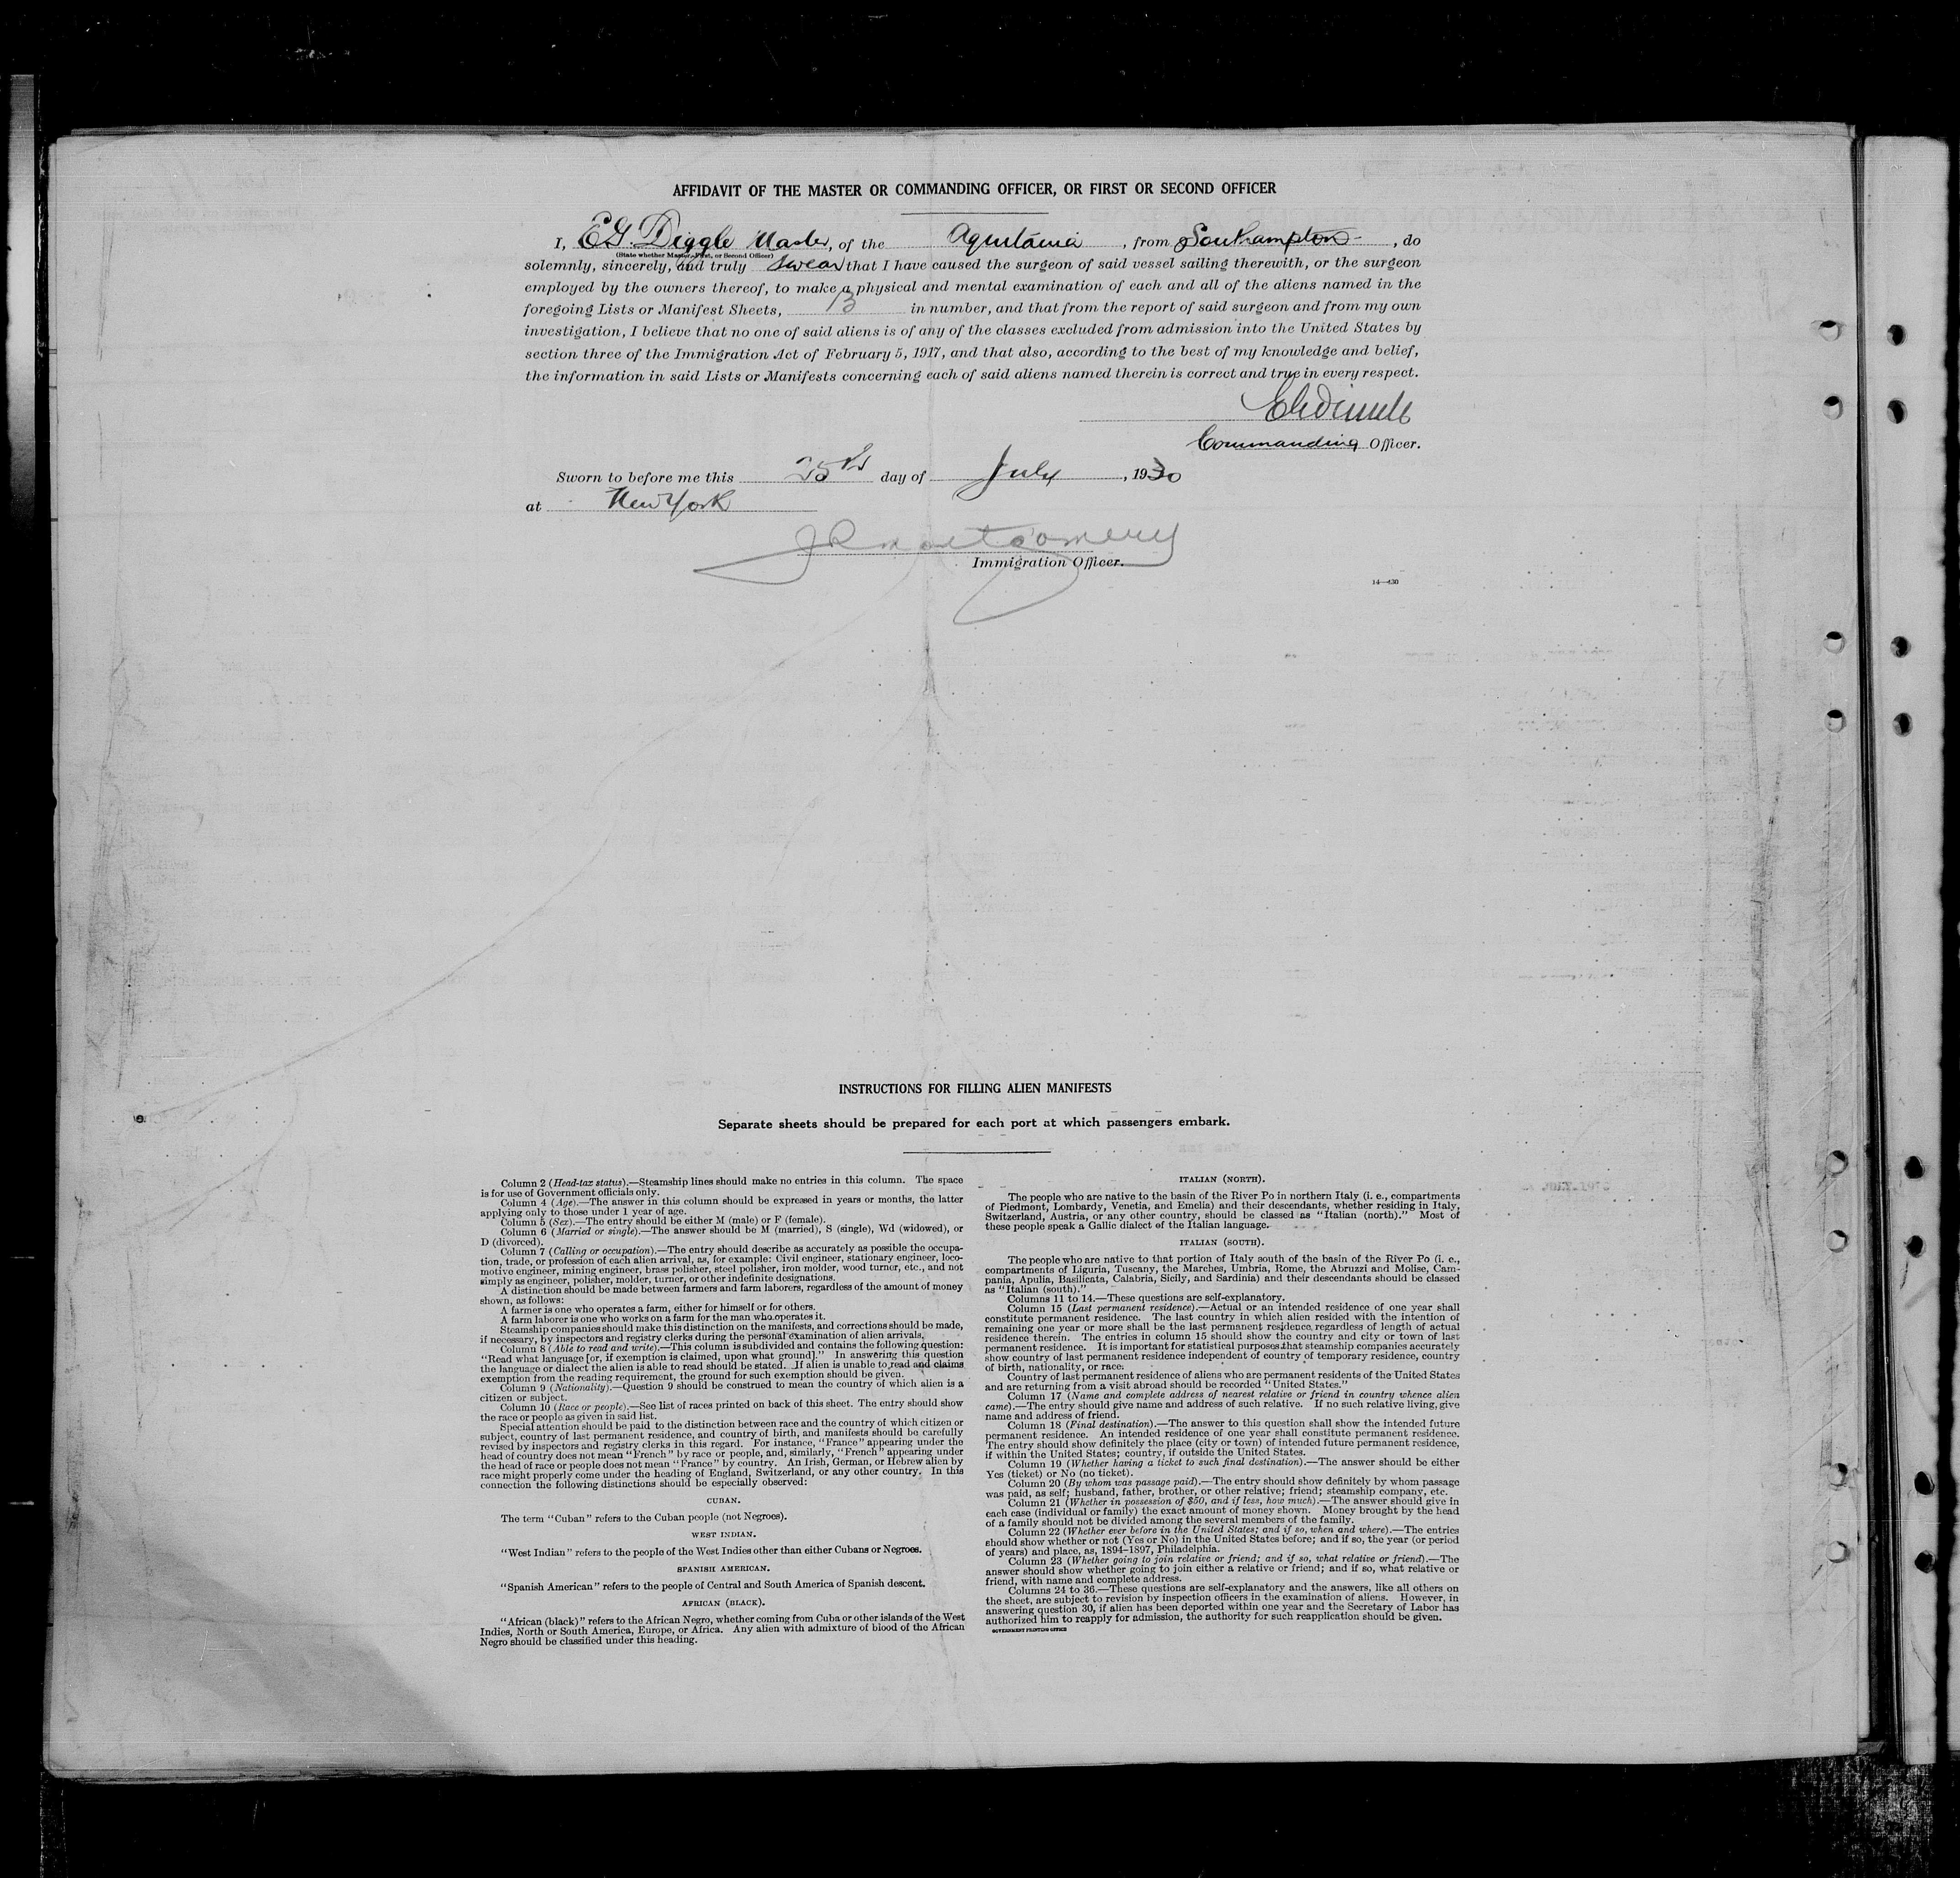 AFFIDAVIT OF THE MASTER OR COMMANDING OFFICER, OR FIRST OR SECOND OFFICER
I, E.G. Diggle Master, of the Aquitania, from Southampton, do
(State whether Master, First, or Second Officer)
solemnly, sincerely, and truly swear that I have caused the surgeon of said vessel sailing therewith, or the surgeon
employed by the owners thereof, to make a physical and mental examination of each and all of the aliens named in the
foregoing Lists or Manifest Sheets, 13 in number, and that from the report of said surgeon and from my own
investigation, I believe that no one of said aliens is of any of the classes excluded from admission into the United States by
section three of the Immigration Act of February 5, 1917, and that also, according to the best of my knowledge and belief,
the information in said Lists or Manifests concerning each of said aliens named therein is correct and true in every respect.
Commanding Officer.
Sworn to before me this 25th day of July, 1930
at New York
J R Montgomery
Immigration Officer.
14—430
INSTRUCTIONS FOR FILLING ALIEN MANIFESTS
Separate sheets should be prepared for each port at which passengers embark.
Column 2 (Head-tax status).—Steamship lines should make no entries in this column. The space
is for use of Government officials only.
Column 4 (Age).—The answer in this column should be expressed in years or months, the latter
applying only to those under 1 year of age.
Column 5 (Sex).—The entry should be either M (male) or F (female).
Column 6 (Married or single).—The answer should be M (married), S (single), Wd (widowed), or
D (divorced).
Column 7 (Calling or occupation).—The entry should describe as accurately as possible the occupa-
tion, trade, or profession of each alien arrival, as, for example: Civil engineer, stationary engineer, loco-
motive engineer, mining engineer, brass polisher, steel polisher, iron molder, wood turner, etc., and not
simply as engineer, polisher, molder, turner, or other indefinite designations.
A distinction should be made between farmers and farm laborers, regardless of the amount of money
shown, as follows:
A farmer is one who operates a farm, either for himself or for others.
A farm laborer is one who works on a farm for the man who operates it.
Steamship companies should make this distinction on the manifests, and corrections should be made,
if necessary, by inspectors and registry clerks during the personal examination of alien arrivals.
Column 8 (Able to read and write).—This column is subdivided and contains the following question:
"Read what language [or, if exemption is claimed, upon what ground]." In answering this question
the language or dialect the alien is able to read should be stated. If alien is unable to read and claims
exemption from the reading requirement, the ground for such exemption should be given.
Column 9 (Nationality).—Question 9 should be construed to mean the country of which alien is a
citizen or subject.
Column 10 (Race or people).—See list of races printed on back of this sheet. The entry should show
the race or people as given in said list.
Special attention should be paid to the distinction between race and the country of which citizen or
subject, country of last permanent residence, and country of birth, and manifests should be carefully
revised by inspectors and registry clerks in this regard. For instance, "France" appearing under the
head of country does not mean "French" by race or people, and, similarly, "French" appearing under
the head of race or people does not mean "France" by country. An Irish, German, or Hebrew alien by
race might properly come under the heading of England, Switzerland, or any other country. In this
connection the following distinctions should be especially observed:
CUBAN.
The term "Cuban" refers to the Cuban people (not Negroes).
WEST INDIAN.
"West Indian" refers to the people of the West Indies other than either Cubans or Negroes.
SPANISH AMERICAN.
"Spanish American" refers to the people of Central and South America of Spanish descent.
AFRICAN (BLACK).
"African (black)" refers to the African Negro, whether coming from Cuba or other islands of the West
Indies, North or South America, Europe, or Africa. Any alien with admixture of blood of the African
Negro should be classified under this heading.
ITALIAN (NORTH).
The people who are native to the basin of the River Po in northern Italy (i. e., compartments
of Piedmont, Lombardy, Venetia, and Emelia) and their descendants, whether residing in Italy,
Switzerland, Austria, or any other country, should be classed as "Italian (north)." Most of
these people speak a Gallic dialect of the Italian language.
ITALIAN (SOUTH).
The people who are native to that portion of Italy south of the basin of the River Po (i. e.,
compartments of Liguria, Tuscany, the Marches, Umbria, Rome, the Abruzzi and Molise, Cam-
pania, Apulia, Basilicata, Calabria, Sicily, and Sardinia) and their descendants should be classed
as "Italian (south)."
Columns 11 to 14.—These questions are self-explanatory.
Column 15 (Last permanent residence).—Actual or an intended residence of one year shall
constitute permanent residence. The last country in which alien resided with the intention of
remaining one year or more shall be the last permanent residence regardless of length of actual
residence therein. The entries in column 15 should show the country and city or town of last
permanent residence. It is important for statistical purposes that steamship companies accurately
show country of last permanent residence independent of country of temporary residence, country
of birth, nationality, or race.
Country of last permanent residence of aliens who are permanent residents of the United States
and are returning from a visit abroad should be recorded "United States."
Column 17 (Name and complete address of nearest relative or friend in country whence alien
came).—The entry should give name and address of such relative. If no such relative living, give
name and address of friend.
Column 18 (Final destination).—The answer to this question shall show the intended future
permanent residence. An intended residence of one year shall constitute permanent residence.
The entry should show definitely the place (city or town) of intended future permanent residence,
if within the United States; country, if outside the United States.
Column 19 (Whether having a ticket to such final destination).—The answer should be either
Yes (ticket) or No (no ticket).
Column 20 (By whom was passage paid).—The entry should show definitely by whom passage
was paid, as self; husband, father, brother, or other relative; friend; steamship company, etc.
Column 21 (Whether in possession of $50, and if less, how much).—The answer should give in
each case (individual or family) the exact amount of money shown. Money brought by the head
of a family should not be divided among the several members of the family.
Column 22 (Whether ever before in the United States; and if so, when and where).—The entries
should show whether or not (Yes or No) in the United States before; and if so, the year (or period
of years) and place, as, 1894-1897, Philadelphia.
Column 23 (Whether going to join relative or friend; and if so, what relative or friend).—The
answer should show whether going to join either a relative or friend; and if so, what relative or
friend, with name and complete address.
Columns 24 to 36.—These questions are self-explanatory and the answers, like all others on
the sheet, are subject to revision by inspection officers in the examination of aliens. However, in
answering question 30, if alien has been deported within one year and the Secretary of Labor has
authorized him to reapply for admission, the authority for such reapplication should be given.
GOVERNMENT PRINTING OFFICE